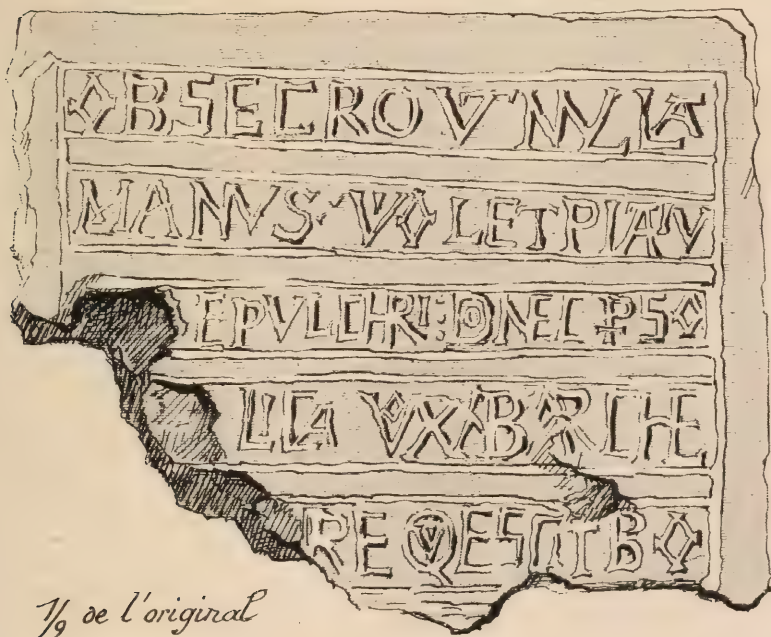 OBSECRO VT NVLLA
MANVS· VIOLET PIA IV
EPVLCHRI: DONEC PSO
LICA VOX AB ARCHE
REQVIESCIT BO
1/9 de l'original